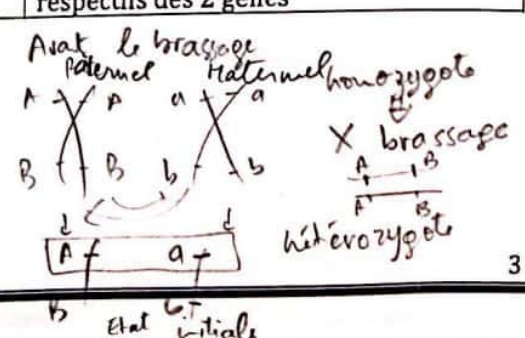 respectifs des 2 gènes
Avat le brassage
Paternel Maternel homozygote
A A a a
X brassage
B B b b
A B
A B
hétérozygote
A a
3
B b
Etat initiale